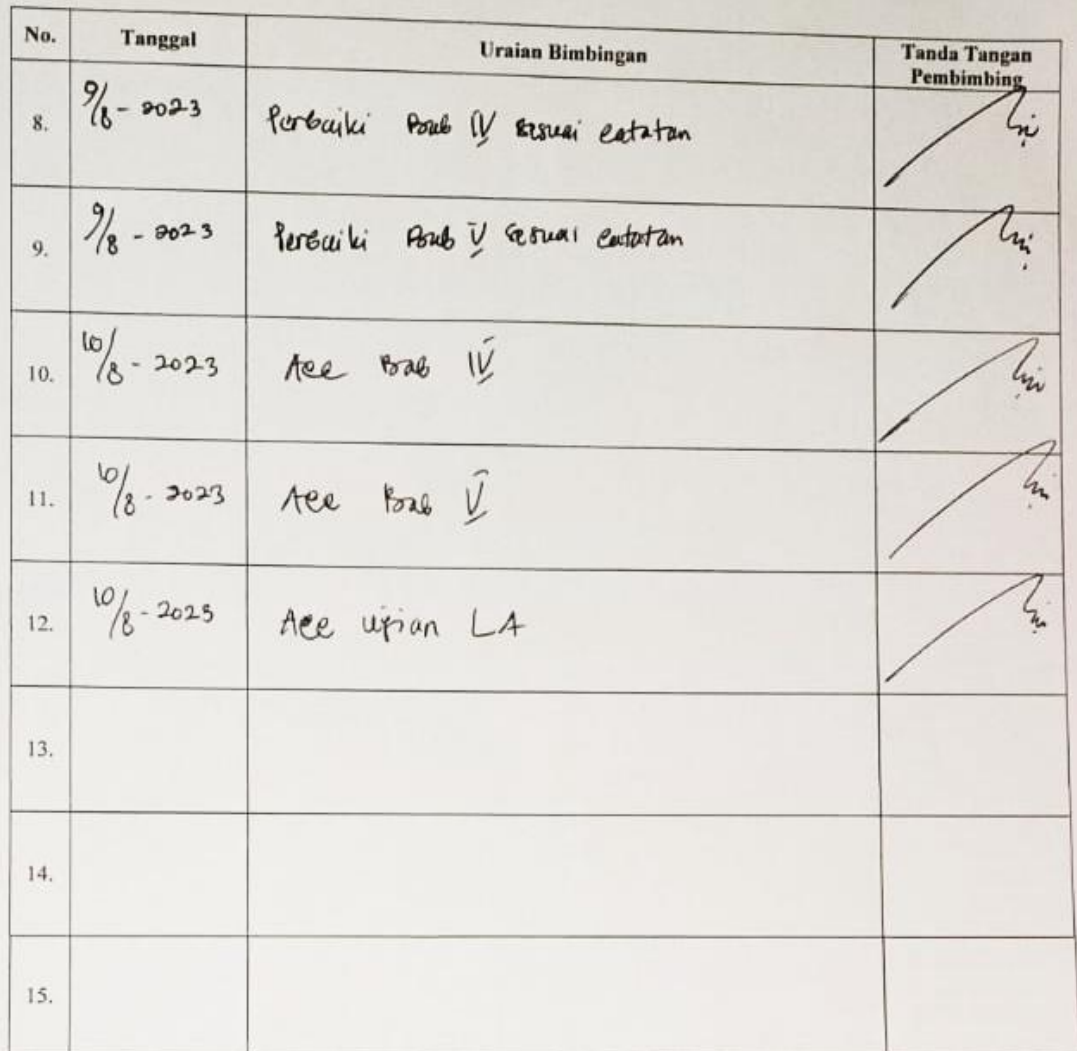 No. Tanggal Uraian Bimbingan Tanda Tangan
Pembimbing
8. 9/8 - 2023 Perbaiki Bab IV sesuai catatan
9. 9/8 - 2023 Perbaiki Bab V sesuai catatan
10. 10/8 - 2023 Acc Bab IV
11. 10/8 - 2023 Acc Bab V
12. 10/8 - 2023 Acc ujian LA
13.
14.
15.